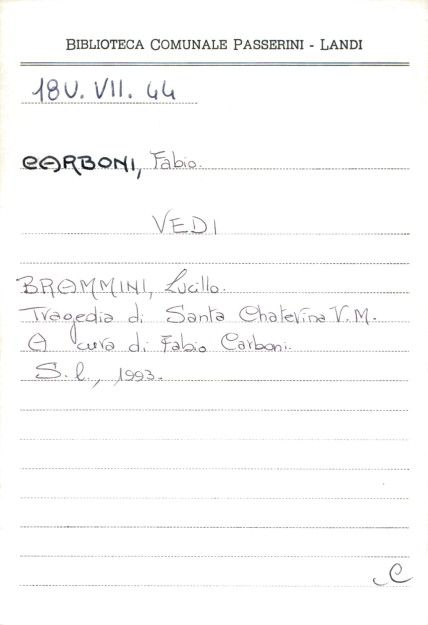 BIBLIOTECA COMUNALE PASSERINI - LANDI
18U. VII. 44
CARBONI, Fabio.
VEDI
BRAMMINI, Lucillo.
Tragedia di Santa Chaterina V.M.
A cura di Fabio Carboni.
S. l., 1993.
C